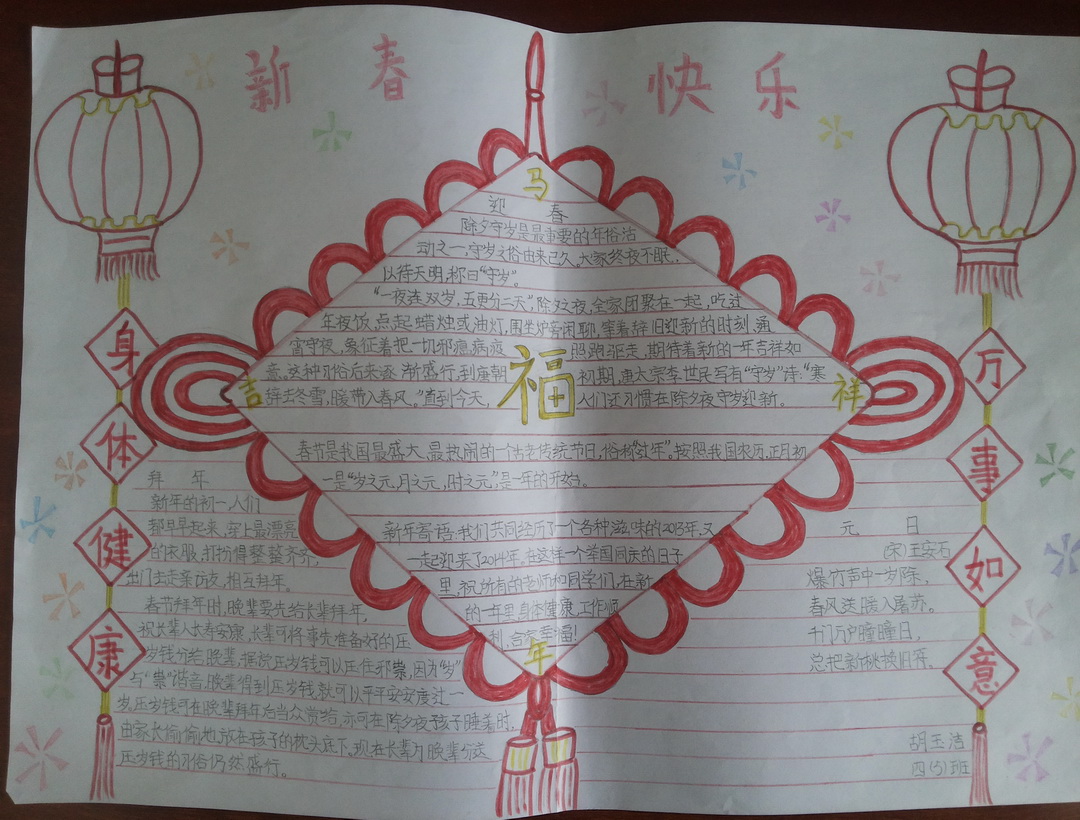 新春快乐
马
迎春
除夕守岁是最重要的年俗活
动之一,守岁之俗由来已久。大家终夜不眠,
以待天明,称曰“守岁”。
“一夜连双岁,五更分二天”除夕夜,全家团聚在一起,吃过
年夜饭,点起蜡烛或油灯,围坐炉旁闲聊,等着辞旧迎新的时刻,通
宵守夜,象征着把一切邪瘟病疫照跑驱走,期待着新的一年吉祥如
意。这种习俗后来逐渐盛行,到唐朝初期,唐太宗李世民写有“守岁”诗:“寒
辞去冬雪,暖带入春风。”直到今天,人们还习惯在除夕夜守岁迎新。
吉
福
祥
春节是我国最盛大、最热闹的一个古老传统节日,俗称“过年”。按照我国农历,正月初
一是“岁之元,月之元,时之元”,是一年的开始。
新年寄语:我们共同经历了一个各种滋味的2013年,又
一起迎来了2014年。在这样一个举国同庆的日子
里,祝所有的老师和同学们,在新
的一年里,身体健康,工作顺
利,合家幸福!
年
身体健康
万事如意
拜年
新年的初一,人们
都早早起来,穿上最漂亮
的衣服,打扮得整整齐齐,
出门去走亲访友,相互拜年。
春节拜年时,晚辈要先给长辈拜年,
祝长辈人长寿安康,长辈可将事先准备好的压
岁钱分给晚辈,据说压岁钱可以压住邪祟,因为“岁”
与“祟”谐音,晚辈得到压岁钱就可以平平安安度过一
岁,压岁钱可在晚辈拜年后当众赏给,亦可在除夕夜孩子睡着时,
由家长偷偷地放在孩子的枕头底下,现在长辈为晚辈分送
压岁钱的习俗仍然盛行。
元日
(宋)王安石
爆竹声中一岁除,
春风送暖入屠苏。
千门万户曈曈日,
总把新桃换旧符。
胡玉洁
四(5)班